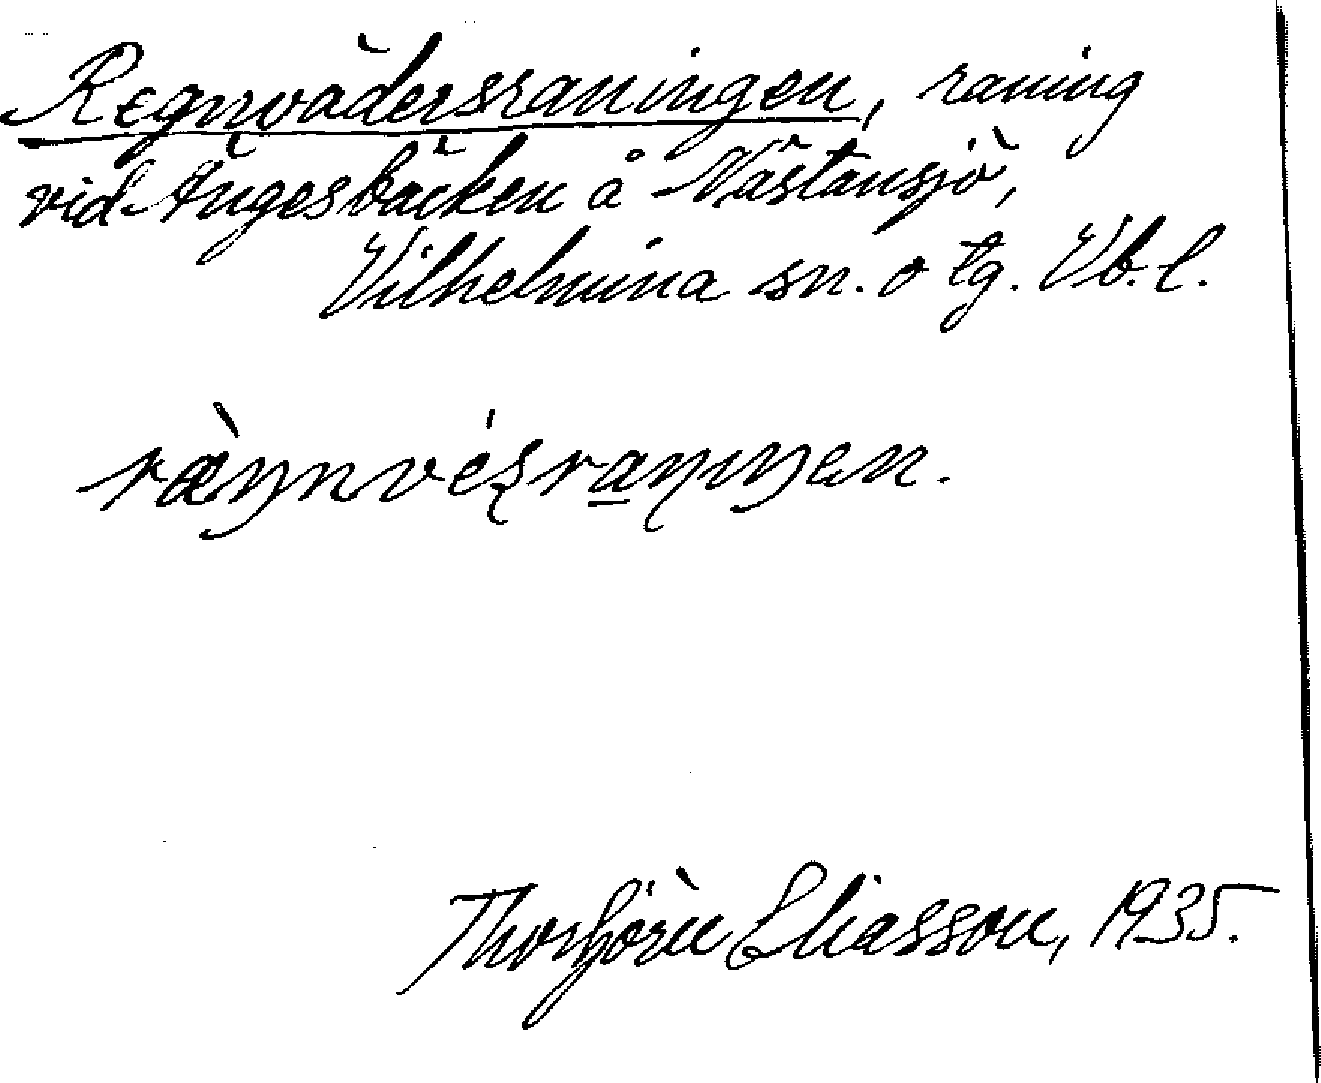 Regnvädersraningen, raning
vid Ängesbäcken å Nästansjö,
Vilhelmina sn. o tg. Vb. l.
ræ̀ŋnvésraniŋen.
Thorbjörn Eliasson, 1935.